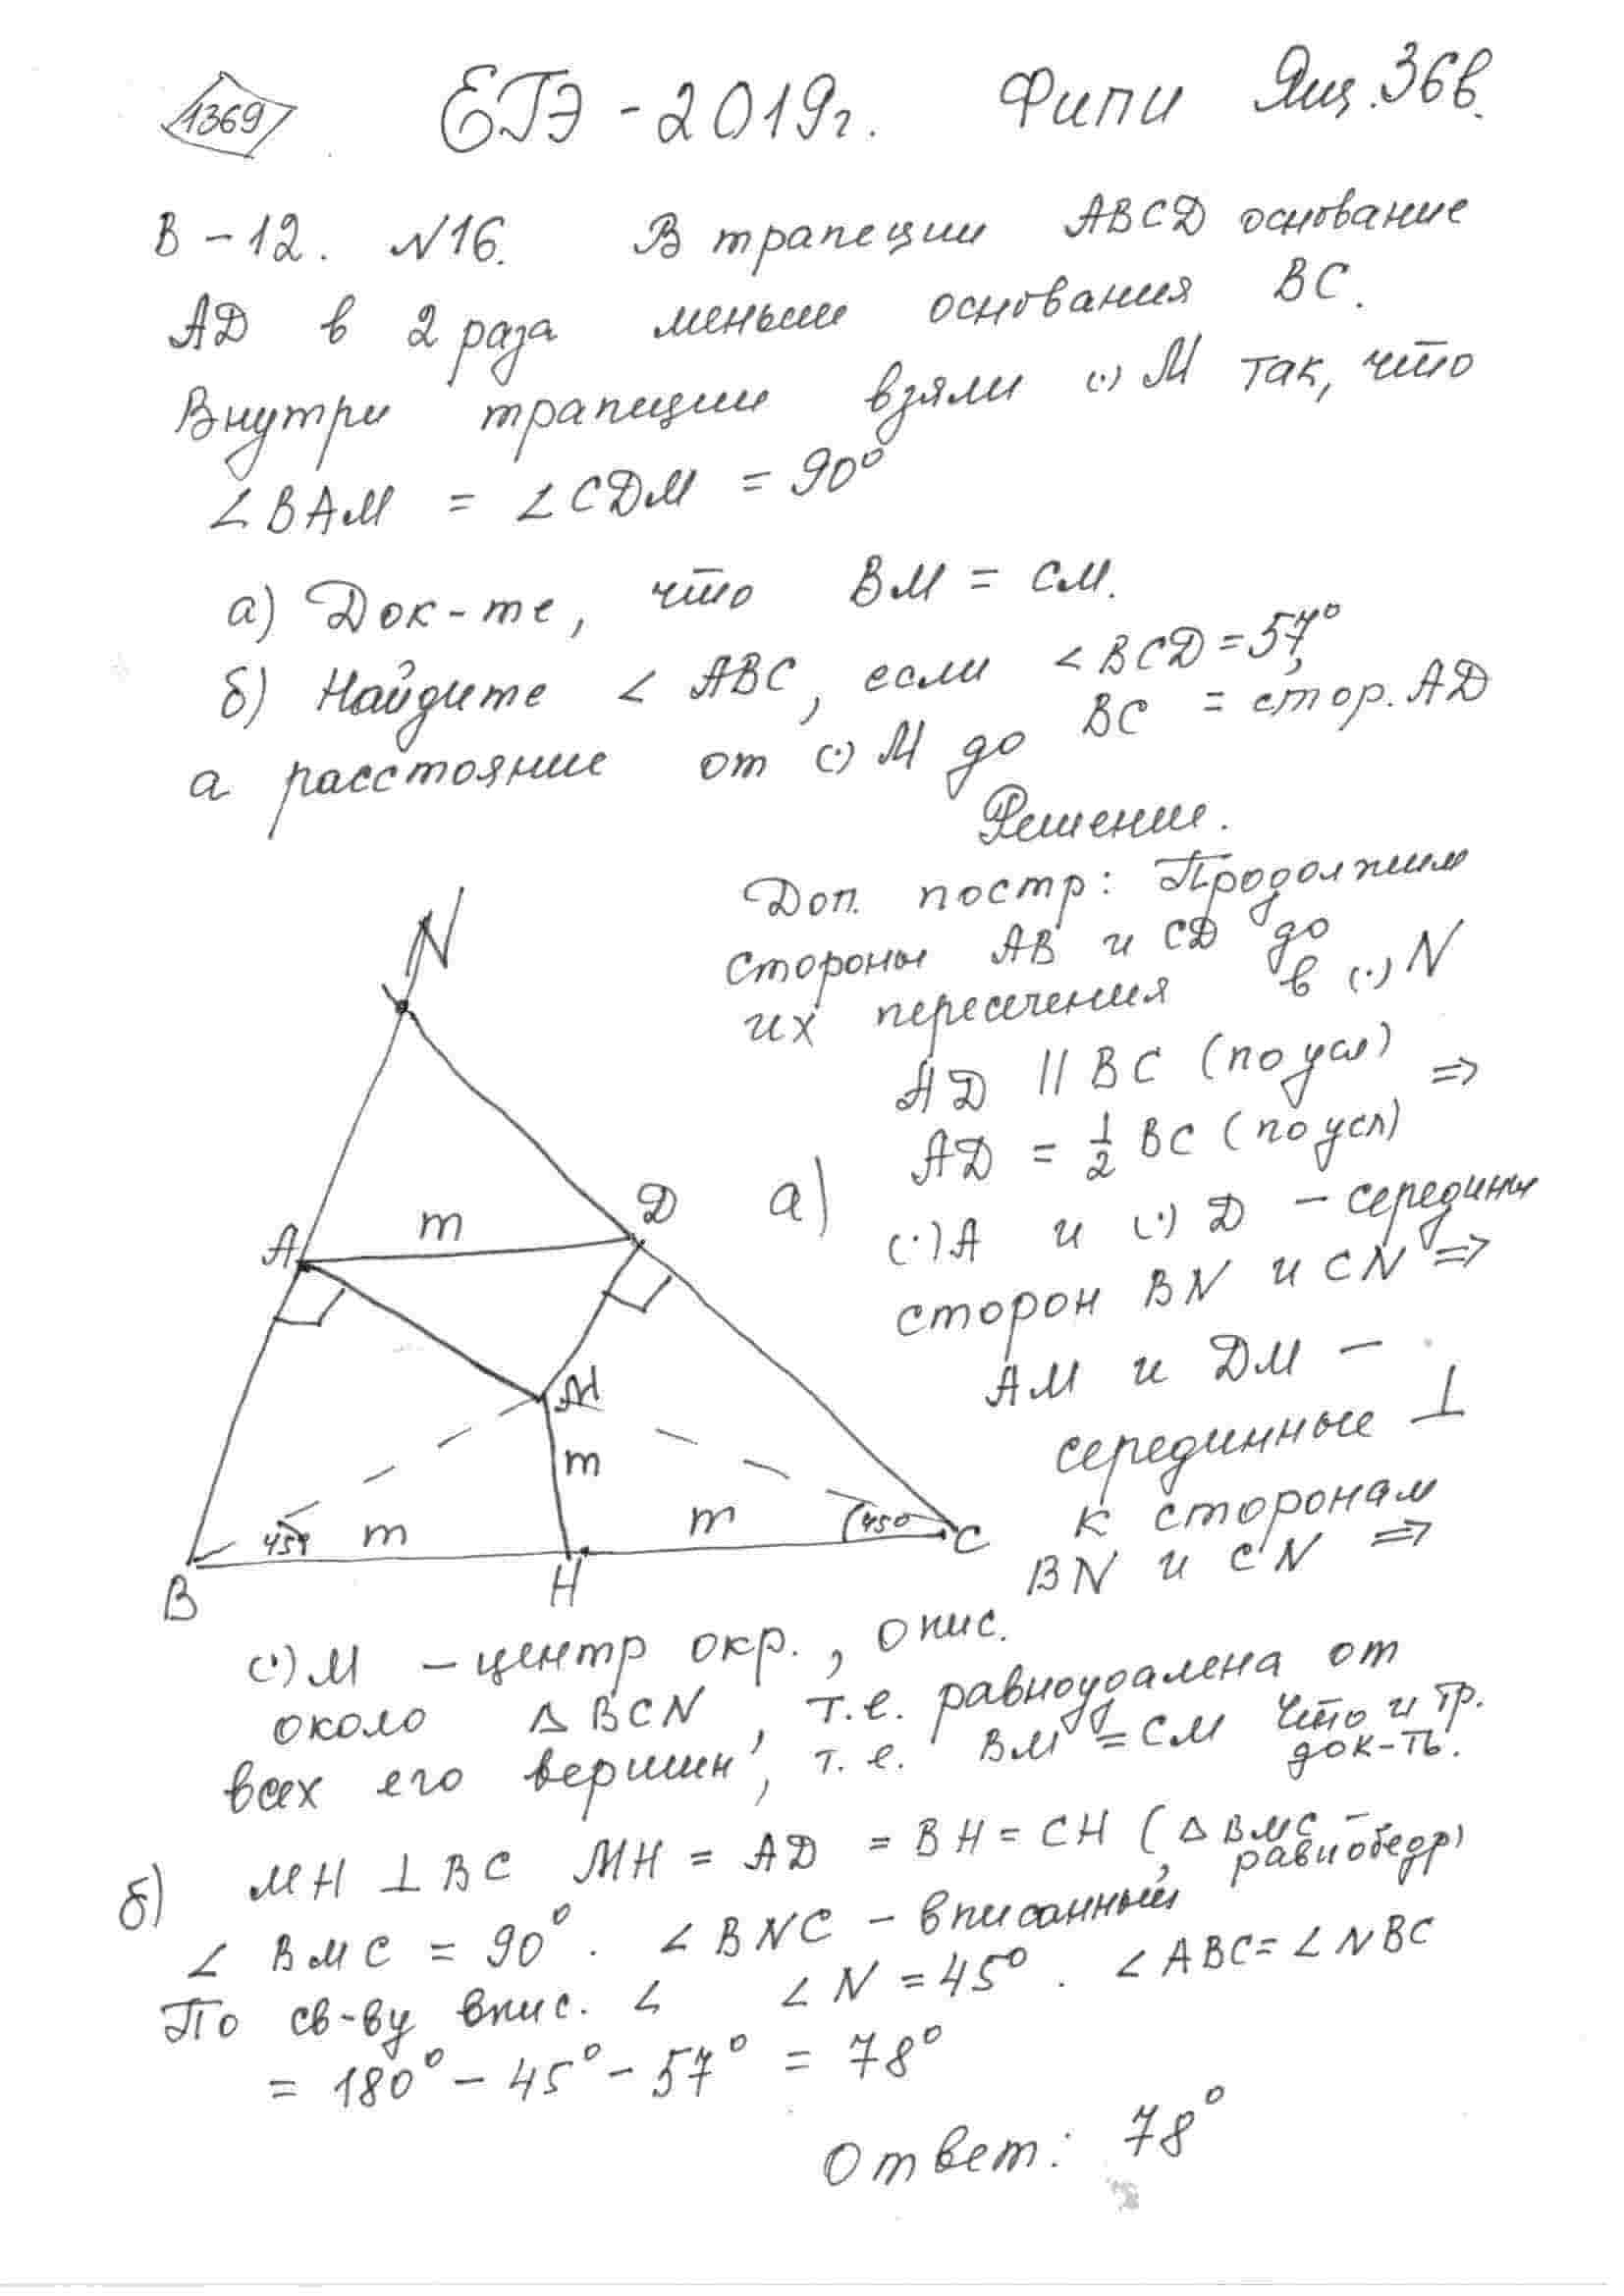 1369
ЕГЭ - 2019г. Фипи Ящ. 36в.
В - 12. N16. В трапеции ABCD основание
AD в 2 раза меньше основания BC.
Внутри трапеции взяли (·) M так, что
∠BAM = ∠CDM = 90°
а) Док-те, что BM = CM.
б) Найдите ∠ ABC, если ∠BCD = 57°,
а расстояние от (·) M до BC = стор. AD
Решение.
Доп. постр: Продолжим
стороны AB и CD до
их пересечения в (·) N
AD || BC (по усл) ⇒
AD = 1/2 BC (по усл)
а) (·) A и (·) D - середины
сторон BN и CN ⇒
AM и DM -
серединные ⊥
к сторонам
BN и CN ⇒
N
A
m
D
M
m
45°
m
m
45°
B
H
C
(·) M - центр окр., опис.
около △ BCN, т.е. равноудалена от
всех его вершин, т.е. BM = CM что и тр.
док-ть.
б) MH ⊥ BC MH = AD = BH = CH (△ BMC -
равнобедр)
∠ BMC = 90°. ∠ BNC - вписанный
По св-ву впис. ∠ ∠ N = 45°. ∠ ABC = ∠ NBC
= 180° - 45° - 57° = 78°
Ответ: 78°